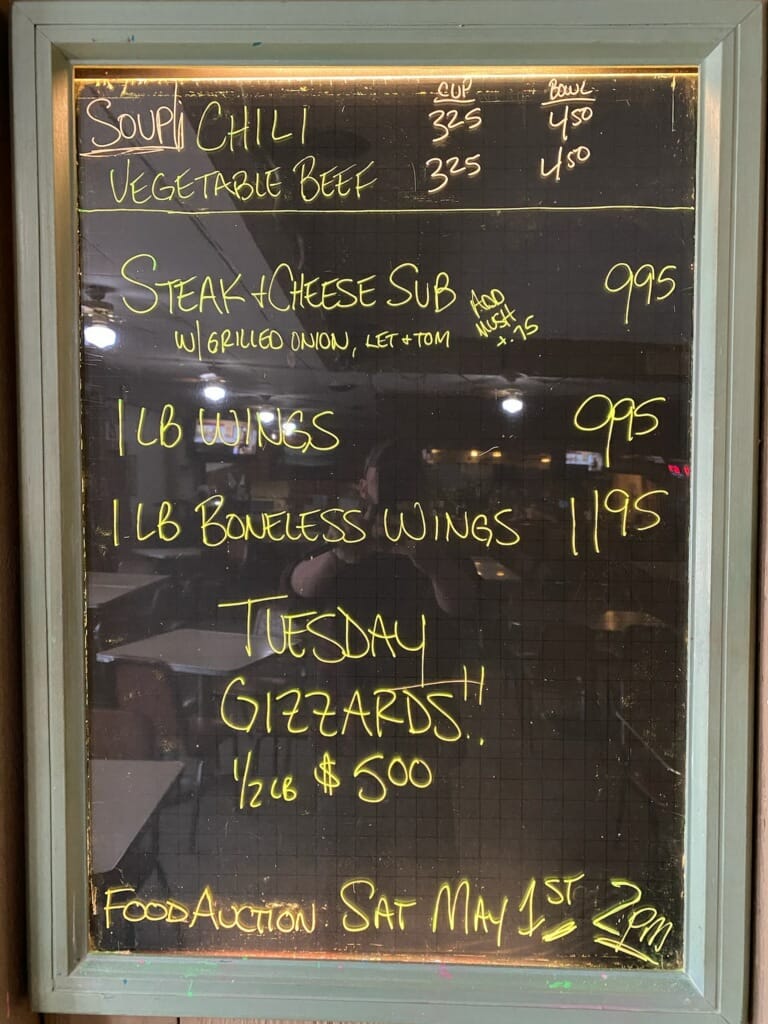 CUP BOWL
SOUP CHILI 325 450
VEGETABLE BEEF 325 450
STEAK + CHEESE SUB 995
W/ GRILLED ONION, LET + TOM
ADD
MUSH
+.75
1 LB WINGS 995
1 LB BONELESS WINGS 1195
TUESDAY
GIZZARDS!!
1/2 LB $ 500
FOOD AUCTION SAT MAY 1ST 2PM